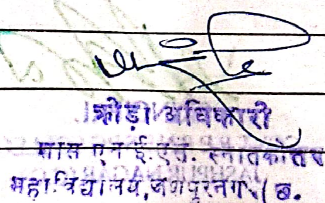 क्रीड़ा अधिकारी
शास एन.ई.एस. स्नातकोत्तर
महाविद्यालय, जशपुरनगर (छ.